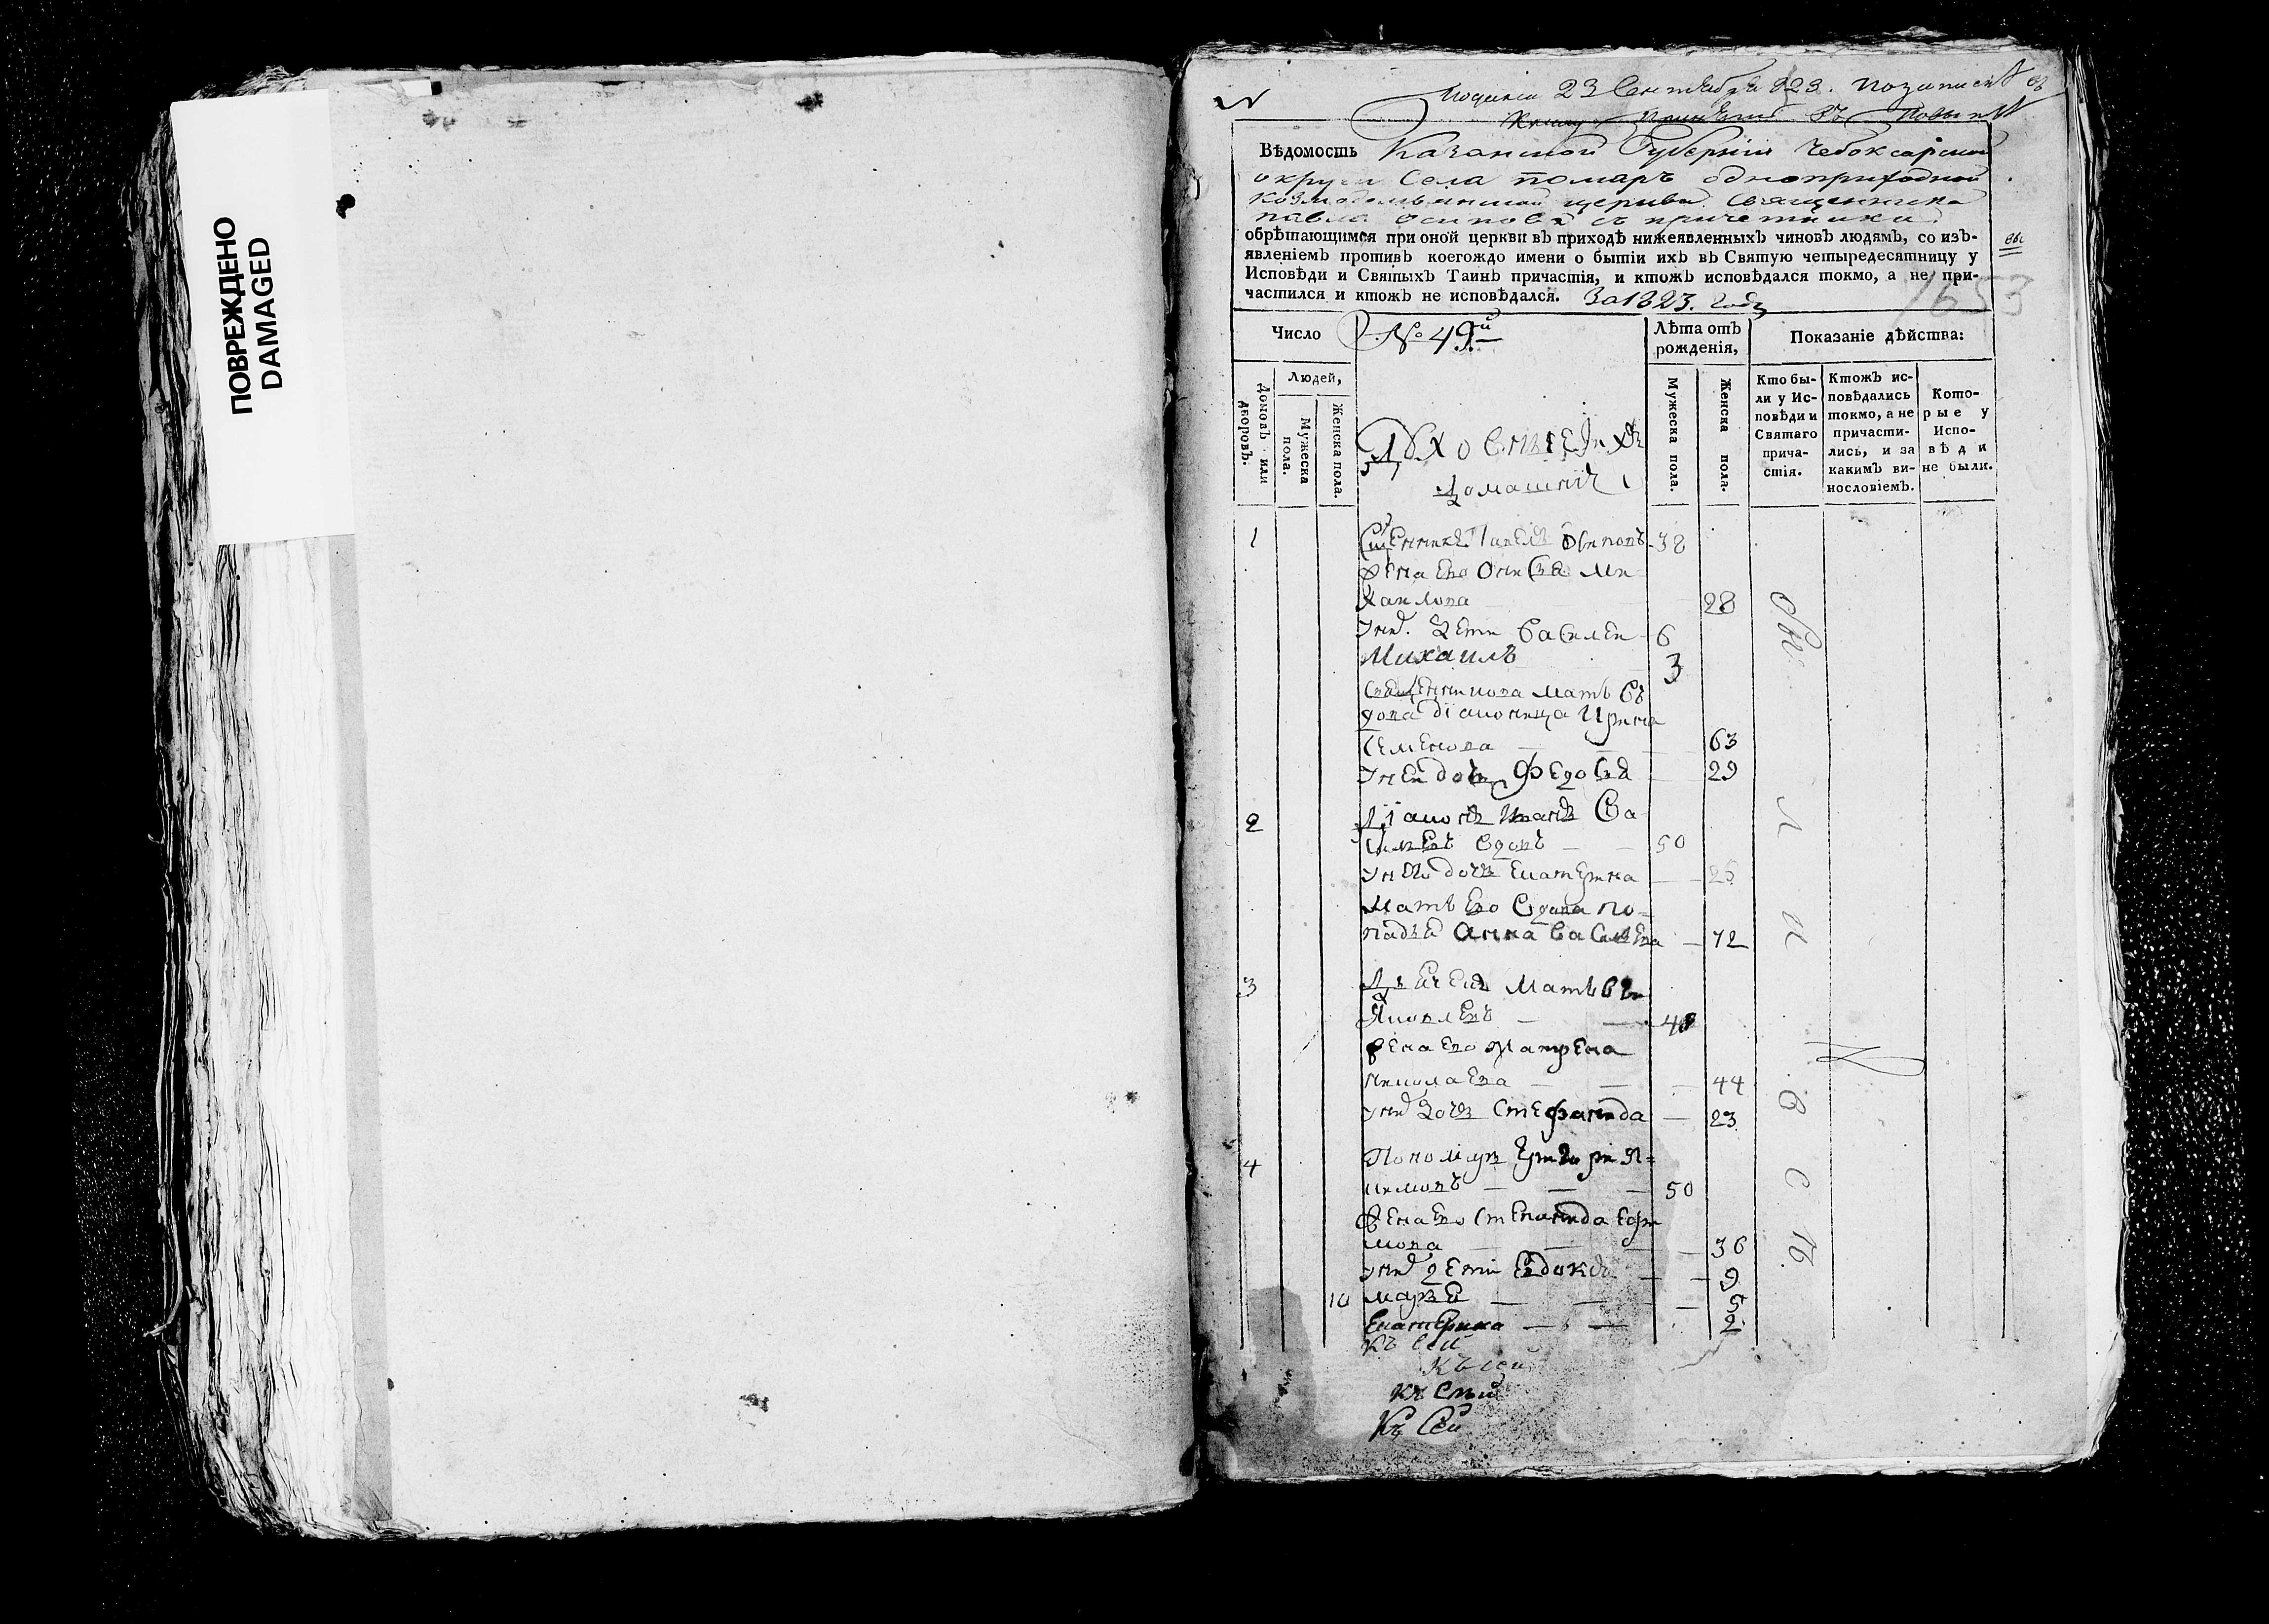 ПОВРЕЖДЕНО
DAMAGED
23 Сентября 823.
Вѣдомость Казанской Губерніи Чебоксарской
округи Села помаръ одноприходной
Козмодемьянской церкви Священника
павла Осипова съ причетники
обрѣтающимся при оной церкви въ приходѣ нижеявленныхъ чиновъ людямъ, со изъ-
явленіемъ противъ коегождо имени о бытіи ихъ въ Святую четыредесятницу у
Исповѣди и Святыхъ Таинъ причастія, и ктожъ исповѣдался токмо, а не при-
частился и ктожъ не исповѣдался. За 1823. годъ
1653
Число
№ 49й
Лѣта отъ
рожденія,
Показаніе дѣйства:
Домовъ или
дворовъ.
Людей,
Мужеска
пола.
Женска пола.
Духовные и ихъ
домашніе
Мужеска пола.
Женска пола.
Кто бы-
ли у Ис-
повѣди и
Святаго
прича-
стія.
Ктожъ ис-
повѣдались
токмо, а не
причасти-
лись, и за
какимъ ви-
нословіемъ.
Кото-
рые у
Испо-
вѣди
не были.
1 Сщенникъ Павелъ Осиповъ 38
Жена Его Ми-
хаилова 28
Ихъ дети Василеи 6
Михаилъ 3
Священникова мать в
дова діаконица Ирина
Семенова 63
Ея дочь Федосья 29
2 Діаконъ Иванъ Ва
сильевъ вдовъ 50
дочь Екатерина 25
Мать Его вдова по-
падья Анна Васильева 72
3 Дьячекъ Матьвѣи
Яковлевъ
Жена Его Матрена
Николаева 44
Ихъ дочь Стефанида 23
4 Пономарь Григореи Я=
кимовъ 50
Жена Его Степанида Ефи
мова 36
Ихъ дети Евдокия 9
10 марья 5
Екатерина 2
Къ сей
Къ сей
Къ сей
Къ Сей